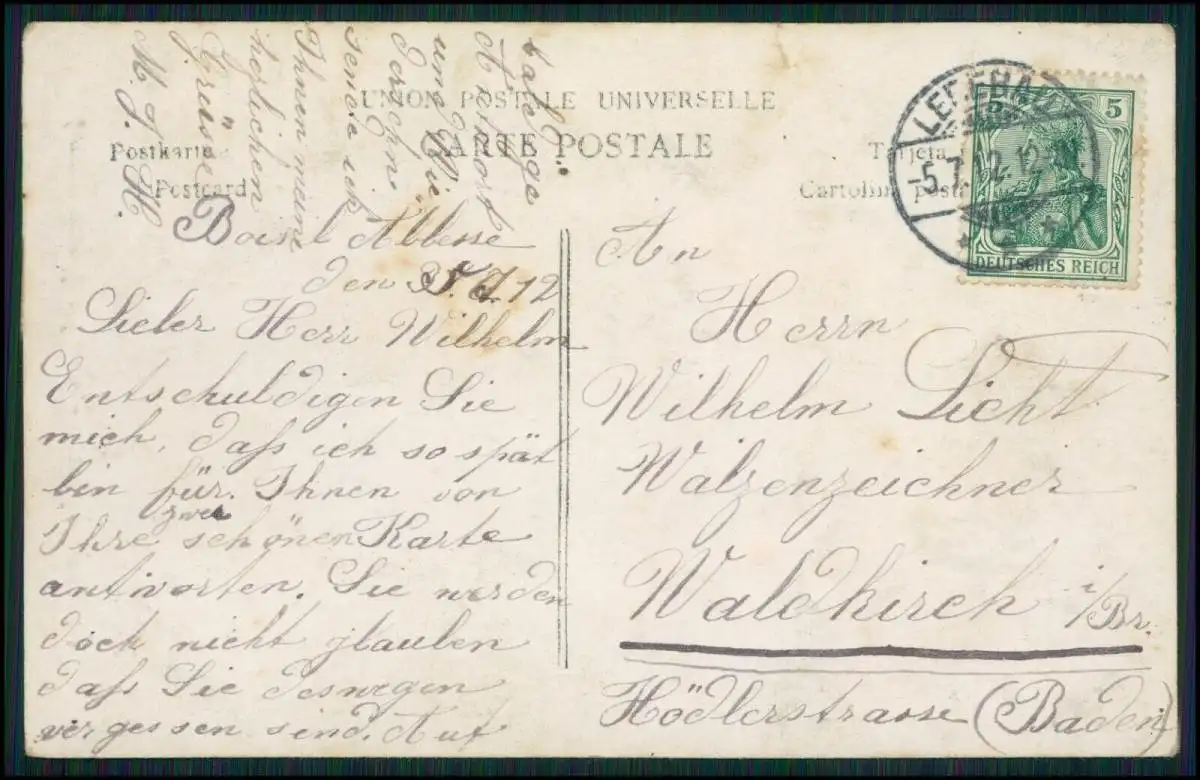 UNION POSTALE UNIVERSELLE
CARTE POSTALE
Postkarte
Postcard
Tarjeta
Cartolina post
5
DEUTSCHES REICH
5.7.12.
den 5.7.12
Lieber Herr Wilhelm
Entschuldigen Sie
mich, daß ich so spät
bin für Ihnen von
Ihre zwei schönen Karte
antworten. Sie werden
doch nicht glauben
daß Sie deswegen
vergessen sind. Auf
baldige
Antwort
und
sende ich
Ihnen meine
herzlichen
Grüsse
M. J. H.
An
Herrn
Wilhelm Licht
Walzenzeichner
Waldkirch i/Br.
Hödlerstrasse (Baden)